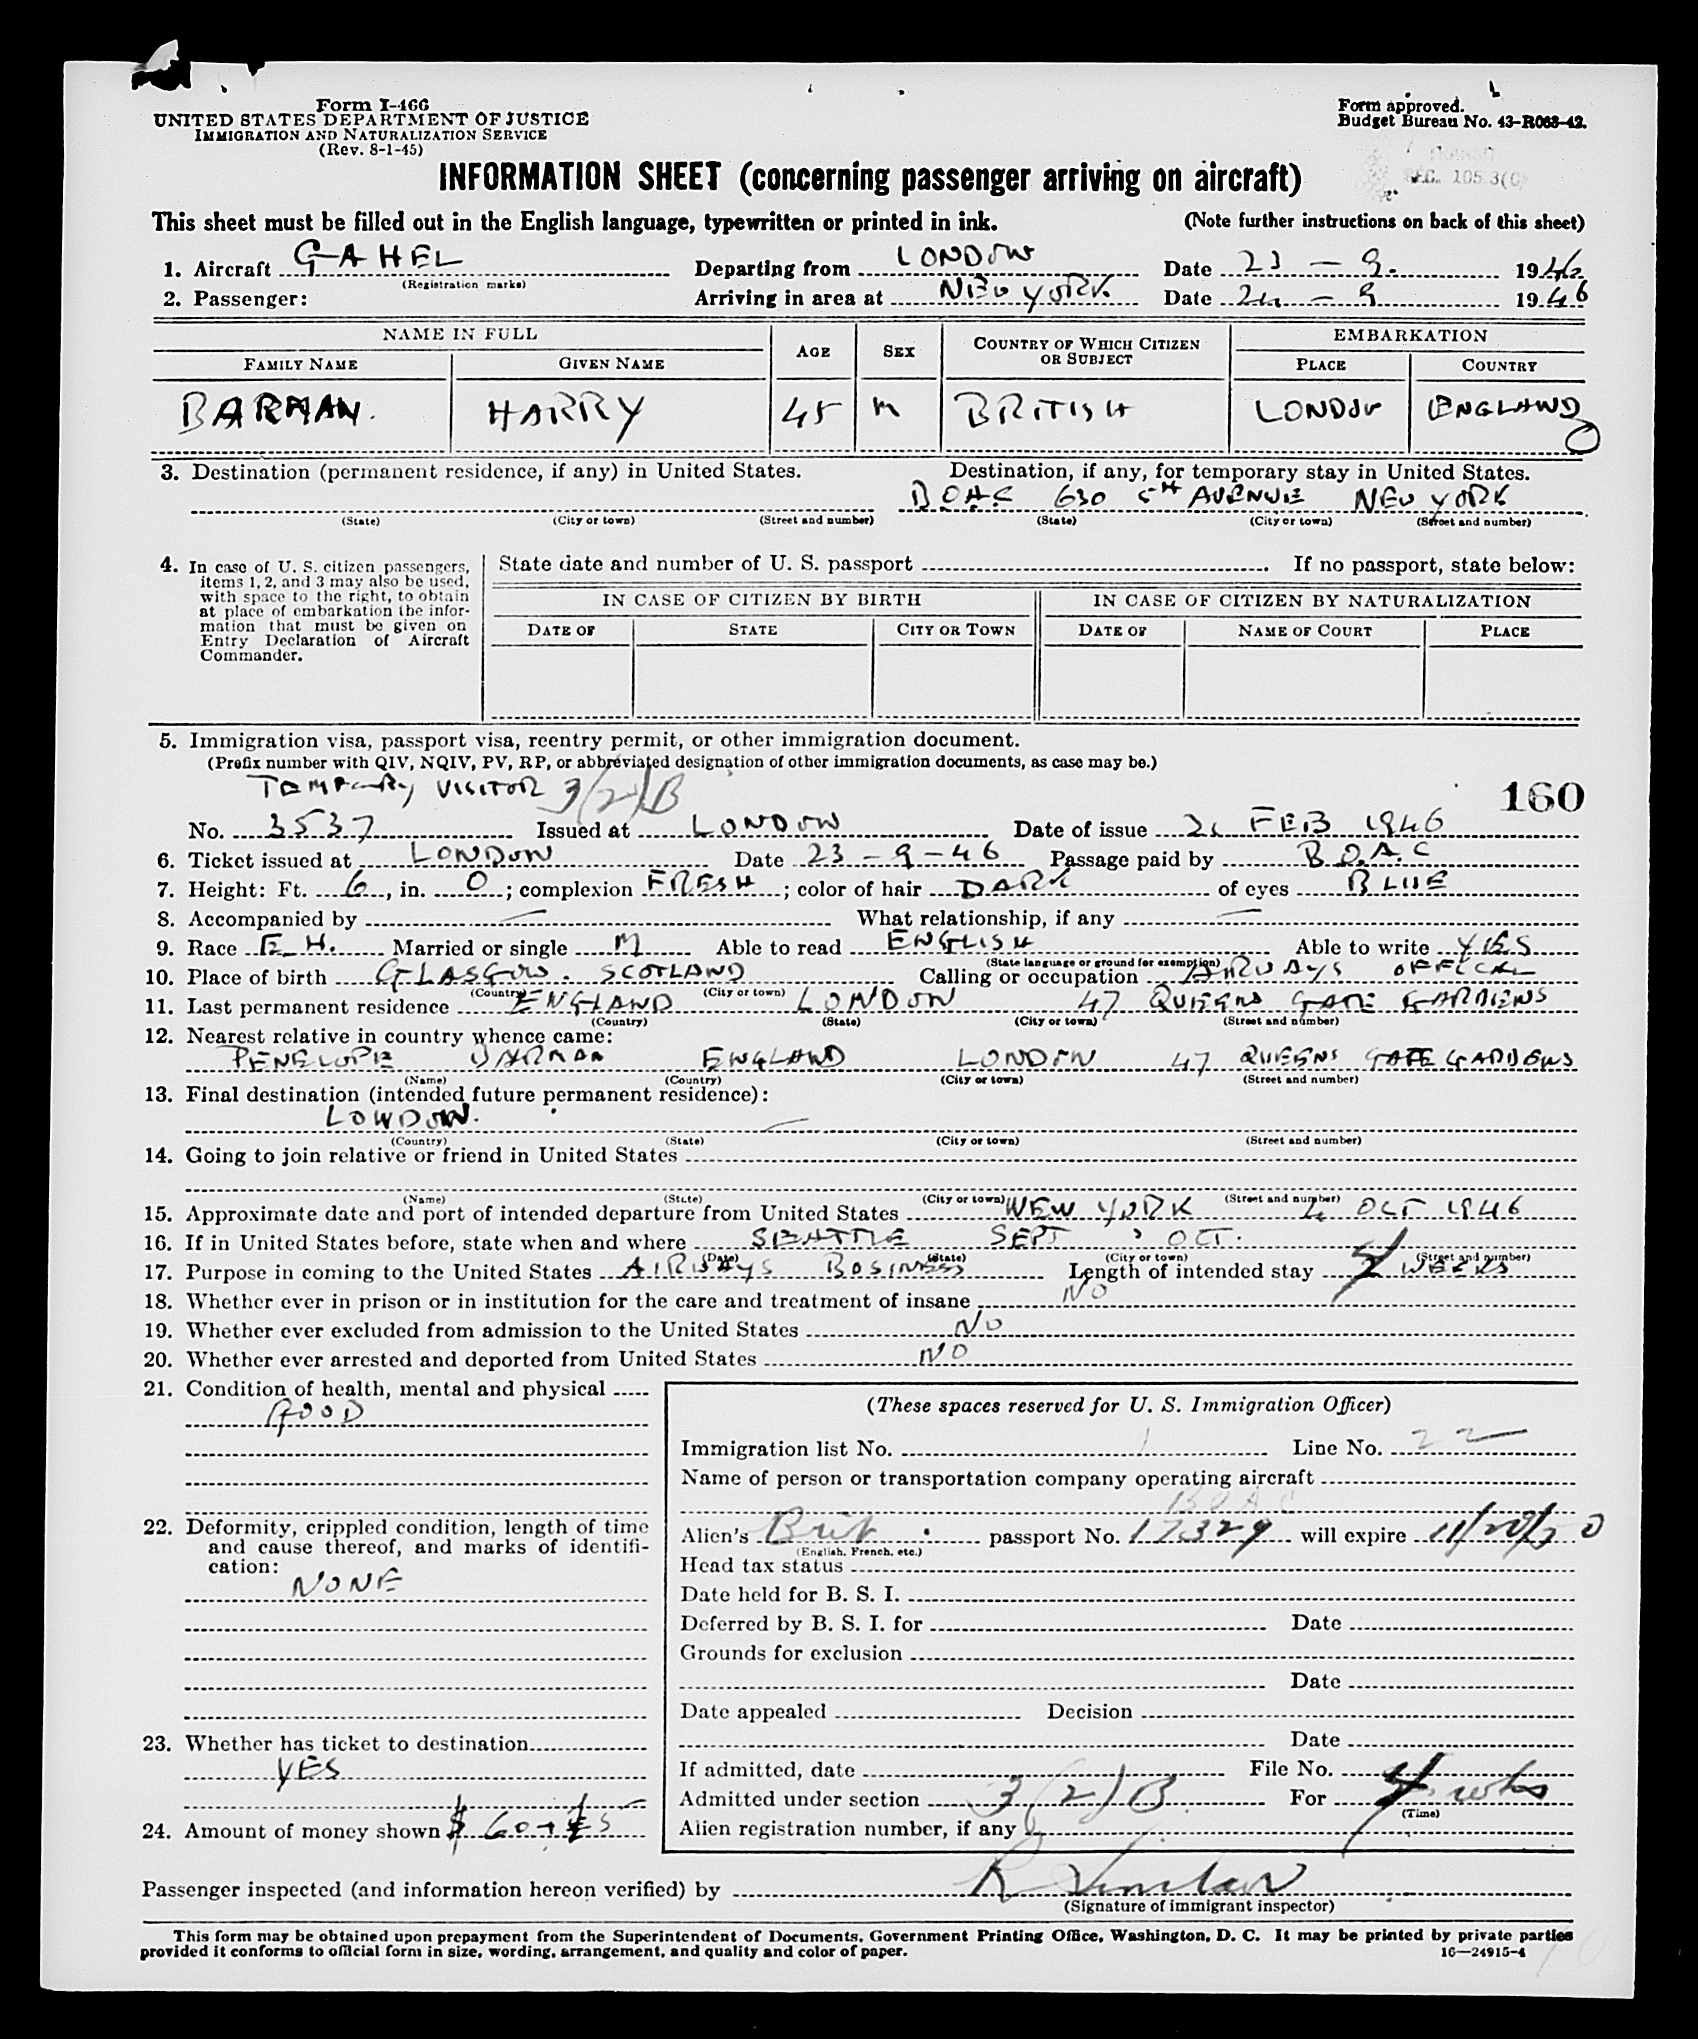 Form I-466
UNITED STATES DEPARTMENT OF JUSTICE
IMMIGRATION AND NATURALIZATION SERVICE
(Rev. 8-1-45)
Form approved.
Budget Bureau No. 43-R063-42.
SEC. 105.3(C)
INFORMATION SHEET (concerning passenger arriving on aircraft)
This sheet must be filled out in the English language, typewritten or printed in ink. (Note further instructions on back of this sheet)
1. Aircraft GAHEL Departing from LONDON Date 23 - 9. 1946
(Registration marks)
2. Passenger: Arriving in area at NEW YORK Date 24 - 9 1946
NAME IN FULL AGE SEX COUNTRY OF WHICH CITIZEN OR SUBJECT EMBARKATION
FAMILY NAME GIVEN NAME PLACE COUNTRY
BARMAN. HARRY 45 M BRITISH LONDON ENGLAND
3. Destination (permanent residence, if any) in United States. Destination, if any, for temporary stay in United States.
BOAC 630 5TH AVENUE NEW YORK
(State) (City or town) (Street and number) (State) (City or town) (Street and number)
4. In case of U. S. citizen passengers,
items 1, 2, and 3 may also be used,
with space to the right, to obtain
at place of embarkation the infor-
mation that must be given on
Entry Declaration of Aircraft
Commander.
State date and number of U. S. passport . If no passport, state below:
IN CASE OF CITIZEN BY BIRTH IN CASE OF CITIZEN BY NATURALIZATION
DATE OF STATE CITY OR TOWN DATE OF NAME OF COURT PLACE
5. Immigration visa, passport visa, reentry permit, or other immigration document.
(Prefix number with QIV, NQIV, PV, RP, or abbreviated designation of other immigration documents, as case may be.)
TEMPORARY VISITOR 3(2)B
160
No. 3537 Issued at LONDON Date of issue FEB 1946
6. Ticket issued at LONDON Date 23-9-46 Passage paid by B.O.A.C
7. Height: Ft. 6, in. 0; complexion FRESH; color of hair DARK of eyes BLUE
8. Accompanied by — What relationship, if any —
9. Race E.H. Married or single M Able to read ENGLISH Able to write YES
(State language or ground for exemption)
10. Place of birth GLASGOW. SCOTLAND Calling or occupation AIRWAYS OFFICIAL
(Country) (City or town)
11. Last permanent residence ENGLAND LONDON 47 QUEENS GATE GARDENS
(Country) (State) (City or town) (Street and number)
12. Nearest relative in country whence came:
PENELOPE BARMAN ENGLAND LONDON 47 QUEENS GATE GARDENS
(Name) (Country) (City or town) (Street and number)
13. Final destination (intended future permanent residence):
LONDON. —
(Country) (State) (City or town) (Street and number)
14. Going to join relative or friend in United States
(Name) (State) (City or town) (Street and number)
15. Approximate date and port of intended departure from United States NEW YORK 4 OCT 1946
16. If in United States before, state when and where SEATTLE SEPT, OCT.
(Date) (State) (City or town) (Street and number)
17. Purpose in coming to the United States AIRWAYS BUSINESS Length of intended stay 4 WEEKS
18. Whether ever in prison or in institution for the care and treatment of insane NO
19. Whether ever excluded from admission to the United States NO
20. Whether ever arrested and deported from United States NO
21. Condition of health, mental and physical
GOOD
22. Deformity, crippled condition, length of time
and cause thereof, and marks of identifi-
cation:
NONE
23. Whether has ticket to destination
YES
24. Amount of money shown $ 60 + £5
(These spaces reserved for U. S. Immigration Officer)
Immigration list No. 1 Line No. 22
Name of person or transportation company operating aircraft
BOAC
Alien's Brit. passport No. 17329 will expire 11/20/50
(English, French, etc.)
Head tax status
Date held for B. S. I.
Deferred by B. S. I. for Date
Grounds for exclusion
Date
Date appealed Decision
Date
If admitted, date File No.
Admitted under section 3(2)B For 4 wks
(Time)
Alien registration number, if any
Passenger inspected (and information hereon verified) by
(Signature of immigrant inspector)
This form may be obtained upon prepayment from the Superintendent of Documents, Government Printing Office, Washington, D. C. It may be printed by private parties
provided it conforms to official form in size, wording, arrangement, and quality and color of paper. 16—24915-4